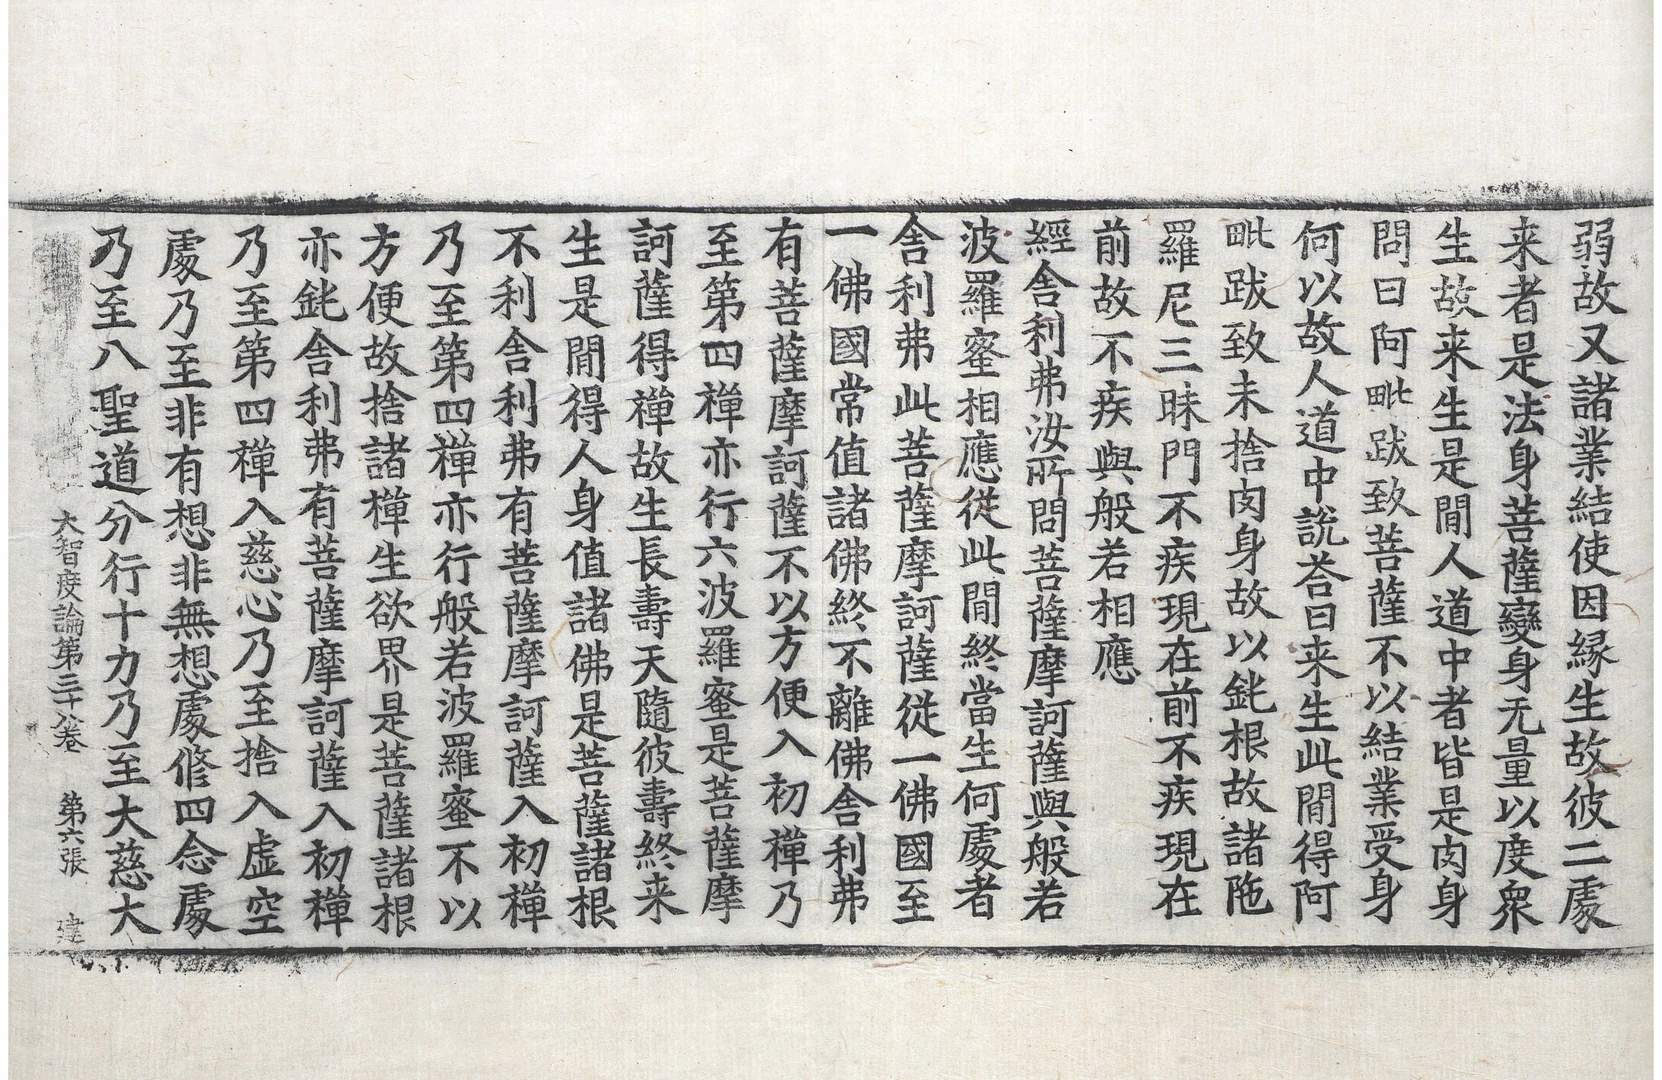 弱故又諸業結使因緣生故彼二處
来者是法身菩薩變身无量以度衆
生故来生是閒人道中者皆是肉身
問曰阿毗跋致菩薩不以結業受身
何以故人道中說荅曰来生此閒得阿
毗跋致未捨肉身故以鈍根故諸陁
羅尼三昧門不疾現在前不疾現在
前故不疾與般若相應
經舍利弗汝所問菩薩摩訶薩與般若
波羅蜜相應從此閒終當生何處者
舍利弗此菩薩摩訶薩從一佛國至
一佛國常值諸佛終不離佛舍利弗
有菩薩摩訶薩不以方便入初禪乃
至第四禪亦行六波羅蜜是菩薩摩
訶薩得禪故生長壽天隨彼壽終来
生是閒得人身值諸佛是菩薩諸根
不利舍利弗有菩薩摩訶薩入初禪
乃至第四禪亦行般若波羅蜜不以
方便故捨諸禪生欲界是菩薩諸根
亦鈍舍利弗有菩薩摩訶薩入初禪
乃至第四禪入慈心乃至捨入虛空
處乃至非有想非無想處修四念處
乃至八聖道分行十力乃至大慈大
大智度論第三十八卷 第六張 建